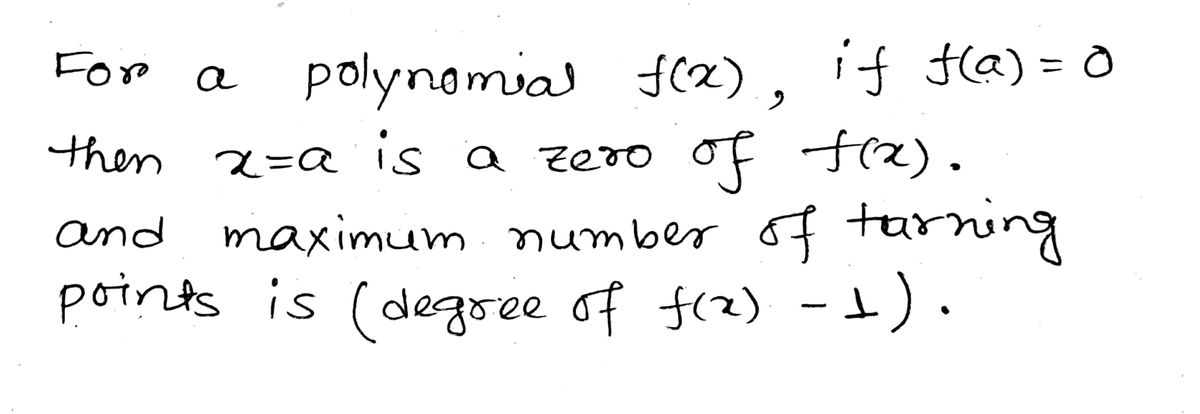 For a polynomial f(x), if f(a) = 0
then x=a is a zero of f(x).
and maximum number of turning
points is (degree of f(x) - 1).